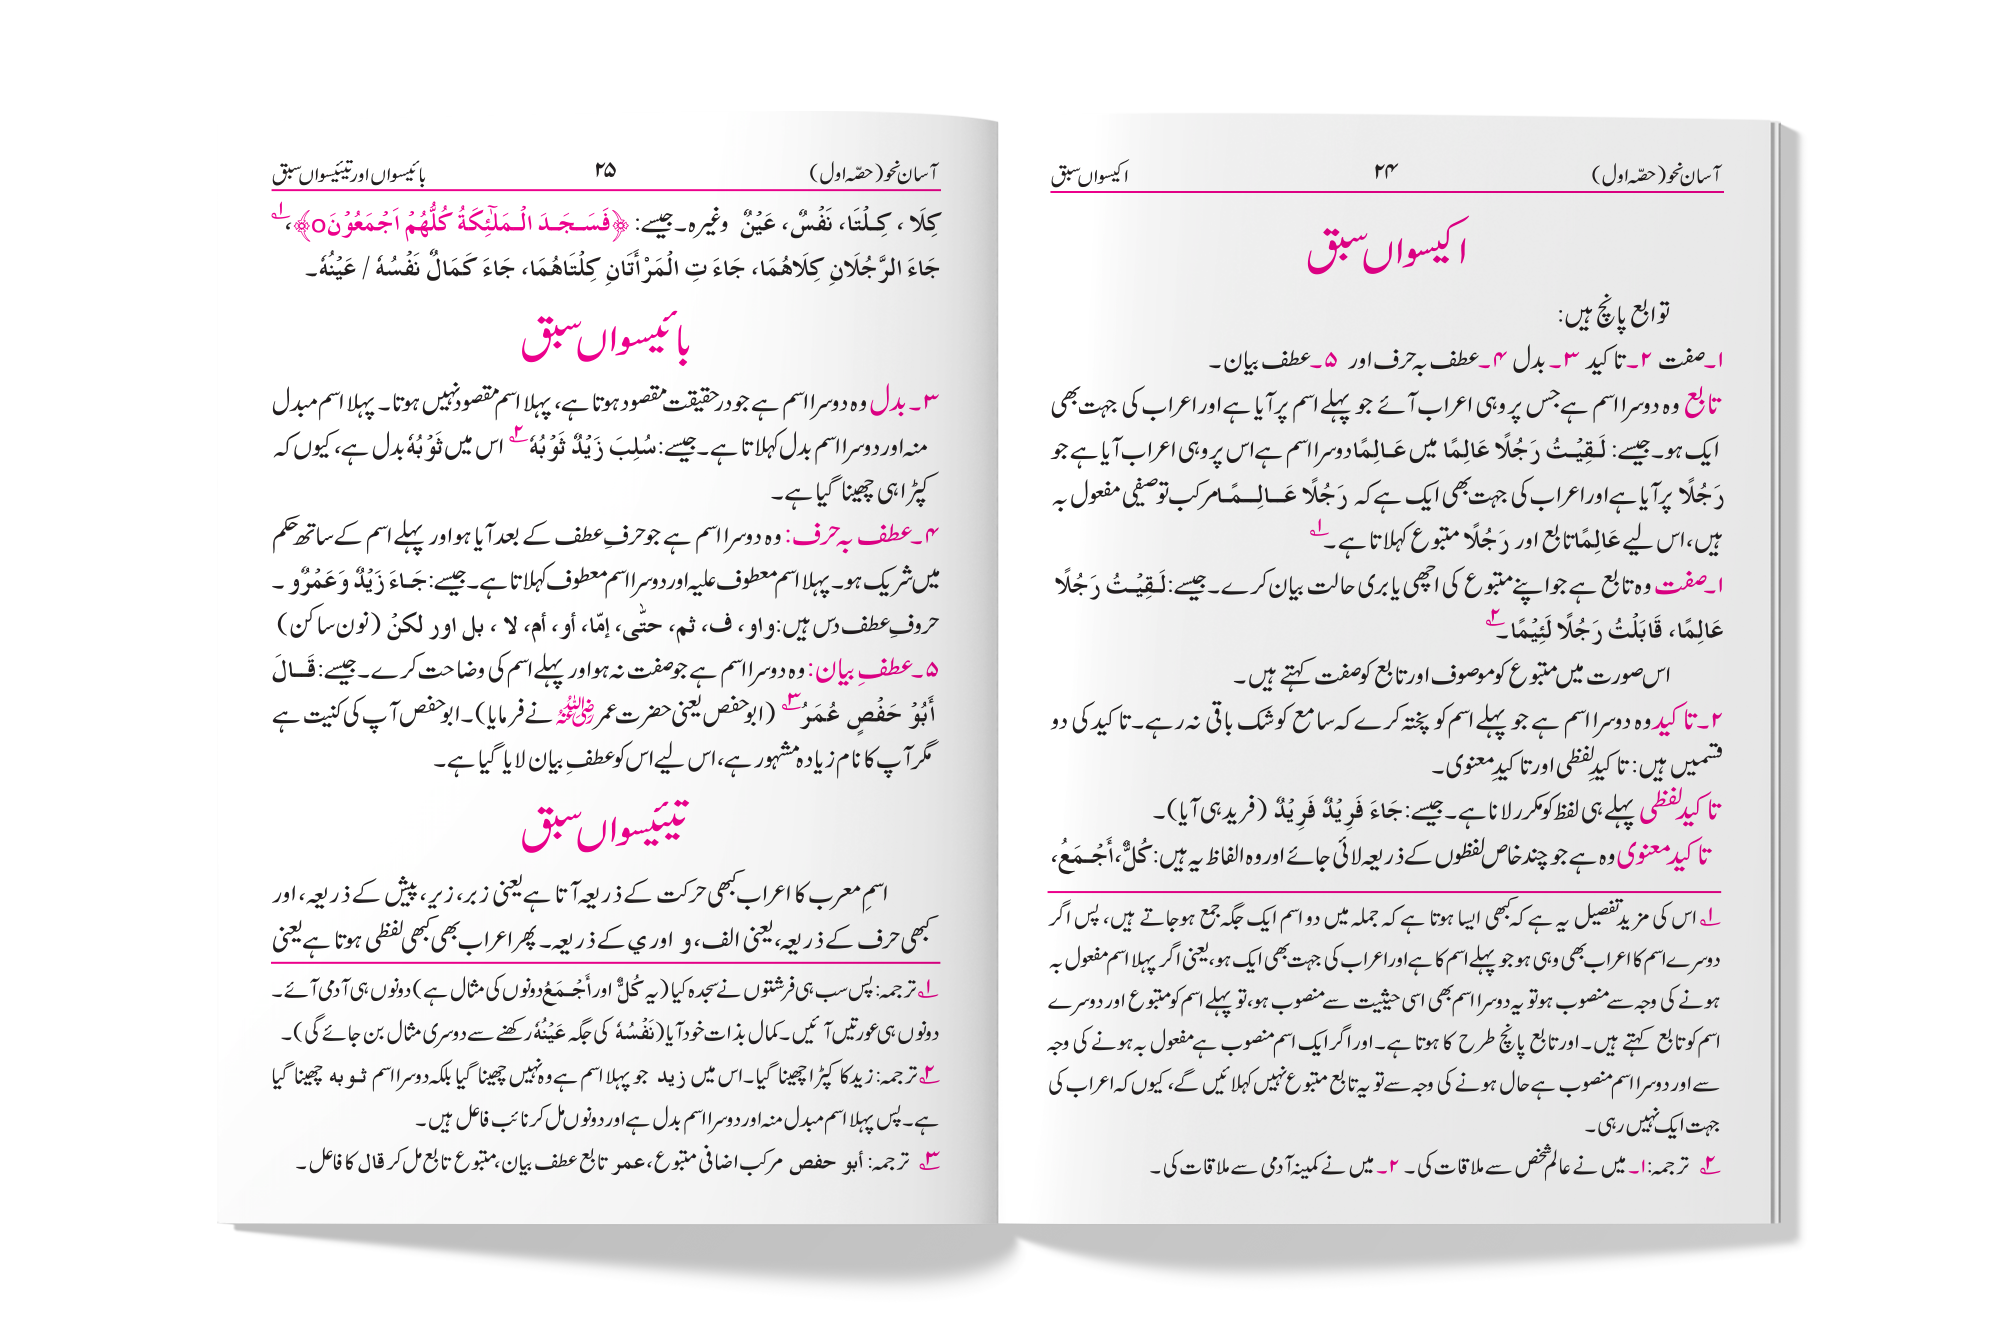 آسان نحو (حصّہ اول) ۲۴ اکیسواں سبق
اکیسواں سبق
توابع پانچ ہیں:
۱۔صفت ۲۔تاکید ۳۔بدل ۴۔عطف بہ حرف اور ۵۔عطف بیان۔
تابع وہ دوسرا اسم ہے جس پر وہی اعراب آئے جو پہلے اسم پر آیا ہے اور اعراب کی جہت بھی
ایک ہو۔جیسے: لَقِیْتُ رَجُلًا عَالِمًا میں عَالِمًا دوسرا اسم ہے اس پر وہی اعراب آیا ہے جو
رَجُلًا پر آیا ہے اور اعراب کی جہت بھی ایک ہے کہ رَجُلًا عَالِمًا مرکب توصیفی مفعول بہ
ہیں، اس لیے عَالِمًا تابع اور رَجُلًا متبوع کہلاتا ہے۔ ۱؎
۱۔صفت وہ تابع ہے جو اپنے متبوع کی اچھی یا بری حالت بیان کرے۔جیسے: لَقِیْتُ رَجُلًا
عَالِمًا، قَابَلْتُ رَجُلًا لَئِیْمًا۔ ۲؎
اس صورت میں متبوع کو موصوف اور تابع کو صفت کہتے ہیں۔
۲۔تاکید وہ دوسرا اسم ہے جو پہلے اسم کو پختہ کرے کہ سامع کو شک باقی نہ رہے۔ تاکید کی دو
قسمیں ہیں: تاکیدِ لفظی اور تاکیدِ معنوی۔
تاکید لفظی پہلے ہی لفظ کو مکرر لانا ہے۔جیسے: جَاءَ فَرِیْدٌ فَرِیْدٌ (فرید ہی آیا)۔
تاکید معنوی وہ ہے جو چند خاص لفظوں کے ذریعہ لائی جائے اور وہ الفاظ یہ ہیں: کُلٌّ، أَجْمَعُ،
۱؎ اس کی مزید تفصیل یہ ہے کہ کبھی ایسا ہوتا ہے کہ جملہ میں دو اسم ایک جگہ جمع ہو جاتے ہیں، پس اگر
دوسرے اسم کا اعراب بھی وہی ہو جو پہلے اسم کا ہے اور اعراب کی جہت بھی ایک ہو، یعنی اگر پہلا اسم مفعول بہ
ہونے کی وجہ سے منصوب ہو تو یہ دوسرا اسم بھی اسی حیثیت سے منصوب ہو، تو پہلے اسم کو متبوع اور دوسرے
اسم کو تابع کہتے ہیں۔ اور تابع پانچ طرح کا ہوتا ہے۔ اور اگر ایک اسم منصوب ہے مفعول بہ ہونے کی وجہ
سے اور دوسرا اسم منصوب ہے حال ہونے کی وجہ سے تو یہ تابع متبوع نہیں کہلائیں گے، کیوں کہ اعراب کی
جہت ایک نہیں رہی۔
۲؎ ترجمہ: ۱۔ میں نے عالم شخص سے ملاقات کی۔ ۲۔ میں نے کمینہ آدمی سے ملاقات کی۔
آسان نحو (حصّہ اول) ۲۵ بائیسواں اور تیئیسواں سبق
کِلَا، کِلْتَا، نَفْسٌ، عَیْنٌ وغیرہ۔جیسے: ﴿فَسَجَدَ الْمَلٰٓئِکَۃُ کُلُّھُمْ اَجْمَعُوْنَo﴾، ۱؎
جَاءَ الرَّجُلَانِ کِلَاھُمَا، جَاءَ تِ الْمَرْأَتَانِ کِلْتَاھُمَا، جَاءَ کَمَالٌ نَفْسُہٗ / عَیْنُہٗ۔
بائیسواں سبق
۳۔بدل وہ دوسرا اسم ہے جو درحقیقت مقصود ہوتا ہے، پہلا اسم مقصود نہیں ہوتا۔ پہلا اسم مبدل
منہ اور دوسرا اسم بدل کہلاتا ہے۔جیسے: سُلِبَ زَیْدٌ ثَوْبُہٗ ۲؎ اس میں ثَوْبُہٗ بدل ہے، کیوں کہ
کپڑا ہی چھینا گیا ہے۔
۴۔عطف بہ حرف: وہ دوسرا اسم ہے جو حرفِ عطف کے بعد آیا ہو اور پہلے اسم کے ساتھ حکم
میں شریک ہو۔ پہلا اسم معطوف علیہ اور دوسرا اسم معطوف کہلاتا ہے۔جیسے: جَاءَ زَیْدٌ وَعَمْرٌو ۔
حروفِ عطف دس ہیں: واو، ف، ثم، حتّٰی، إمّا، أو، أم، لا، بل اور لکنْ (نون ساکن)
۵۔عطفِ بیان: وہ دوسرا اسم ہے جو صفت نہ ہو اور پہلے اسم کی وضاحت کرے۔جیسے: قَالَ
أَبُوْ حَفْصٍ عُمَرُ ۳؎ (ابو حفص یعنی حضرت عمر رضی اللہ عنہ نے فرمایا)۔ ابو حفص آپ کی کنیت ہے
مگر آپ کا نام زیادہ مشہور ہے، اس لیے اس کو عطفِ بیان لایا گیا ہے۔
تیئیسواں سبق
اسمِ معرب کا اعراب کبھی حرکت کے ذریعہ آتا ہے یعنی زبر، زیر، پیش کے ذریعہ، اور
کبھی حرف کے ذریعہ، یعنی الف، و اور ي کے ذریعہ۔ پھر اعراب بھی کبھی لفظی ہوتا ہے یعنی
۱؎ ترجمہ: پس سب ہی فرشتوں نے سجدہ کیا (یہ کُلٌّ اور أَجْمَعُ دونوں کی مثال ہے) دونوں ہی آدمی آئے۔
دونوں ہی عورتیں آئیں۔ کمال بذات خود آیا (نَفْسُہٗ کی جگہ عَیْنُہٗ رکھنے سے دوسری مثال بن جائے گی)۔
۲؎ ترجمہ: زید کا کپڑا چھینا گیا۔ اس میں زید جو پہلا اسم ہے وہ نہیں چھینا گیا بلکہ دوسرا اسم ثوبہ چھینا گیا
ہے۔ پس پہلا اسم مبدل منہ اور دوسرا اسم بدل ہے اور دونوں مل کر نائب فاعل ہیں۔
۳؎ ترجمہ: أبو حفص مرکب اضافی متبوع، عمر تابع عطف بیان، متبوع تابع مل کر قال کا فاعل۔